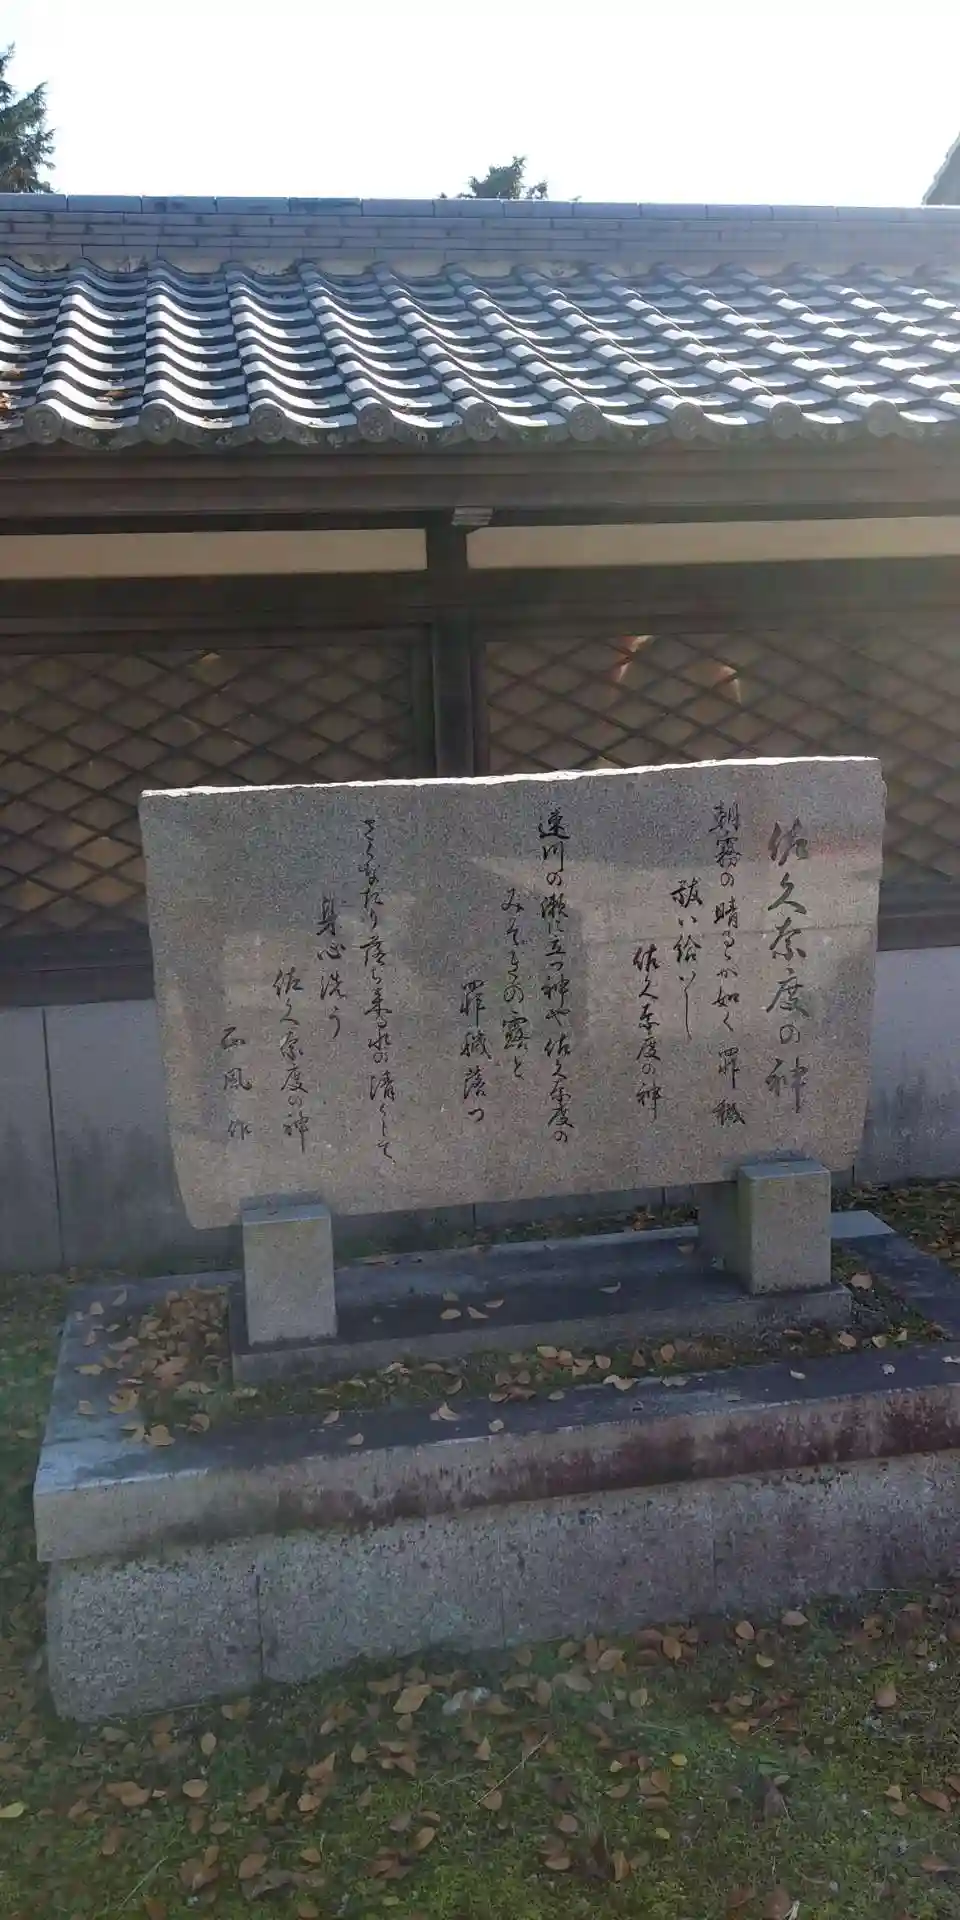 佐久奈度の神
朝霧の晴るゝが如く 罪穢
祓い給いし
佐久奈度の神
速川の瀬に立つ神や佐久奈度の
みそぎの露と
罪穢落つ
さくなだり落ち来る水の清くして
身心洗う
佐久奈度の神
風作